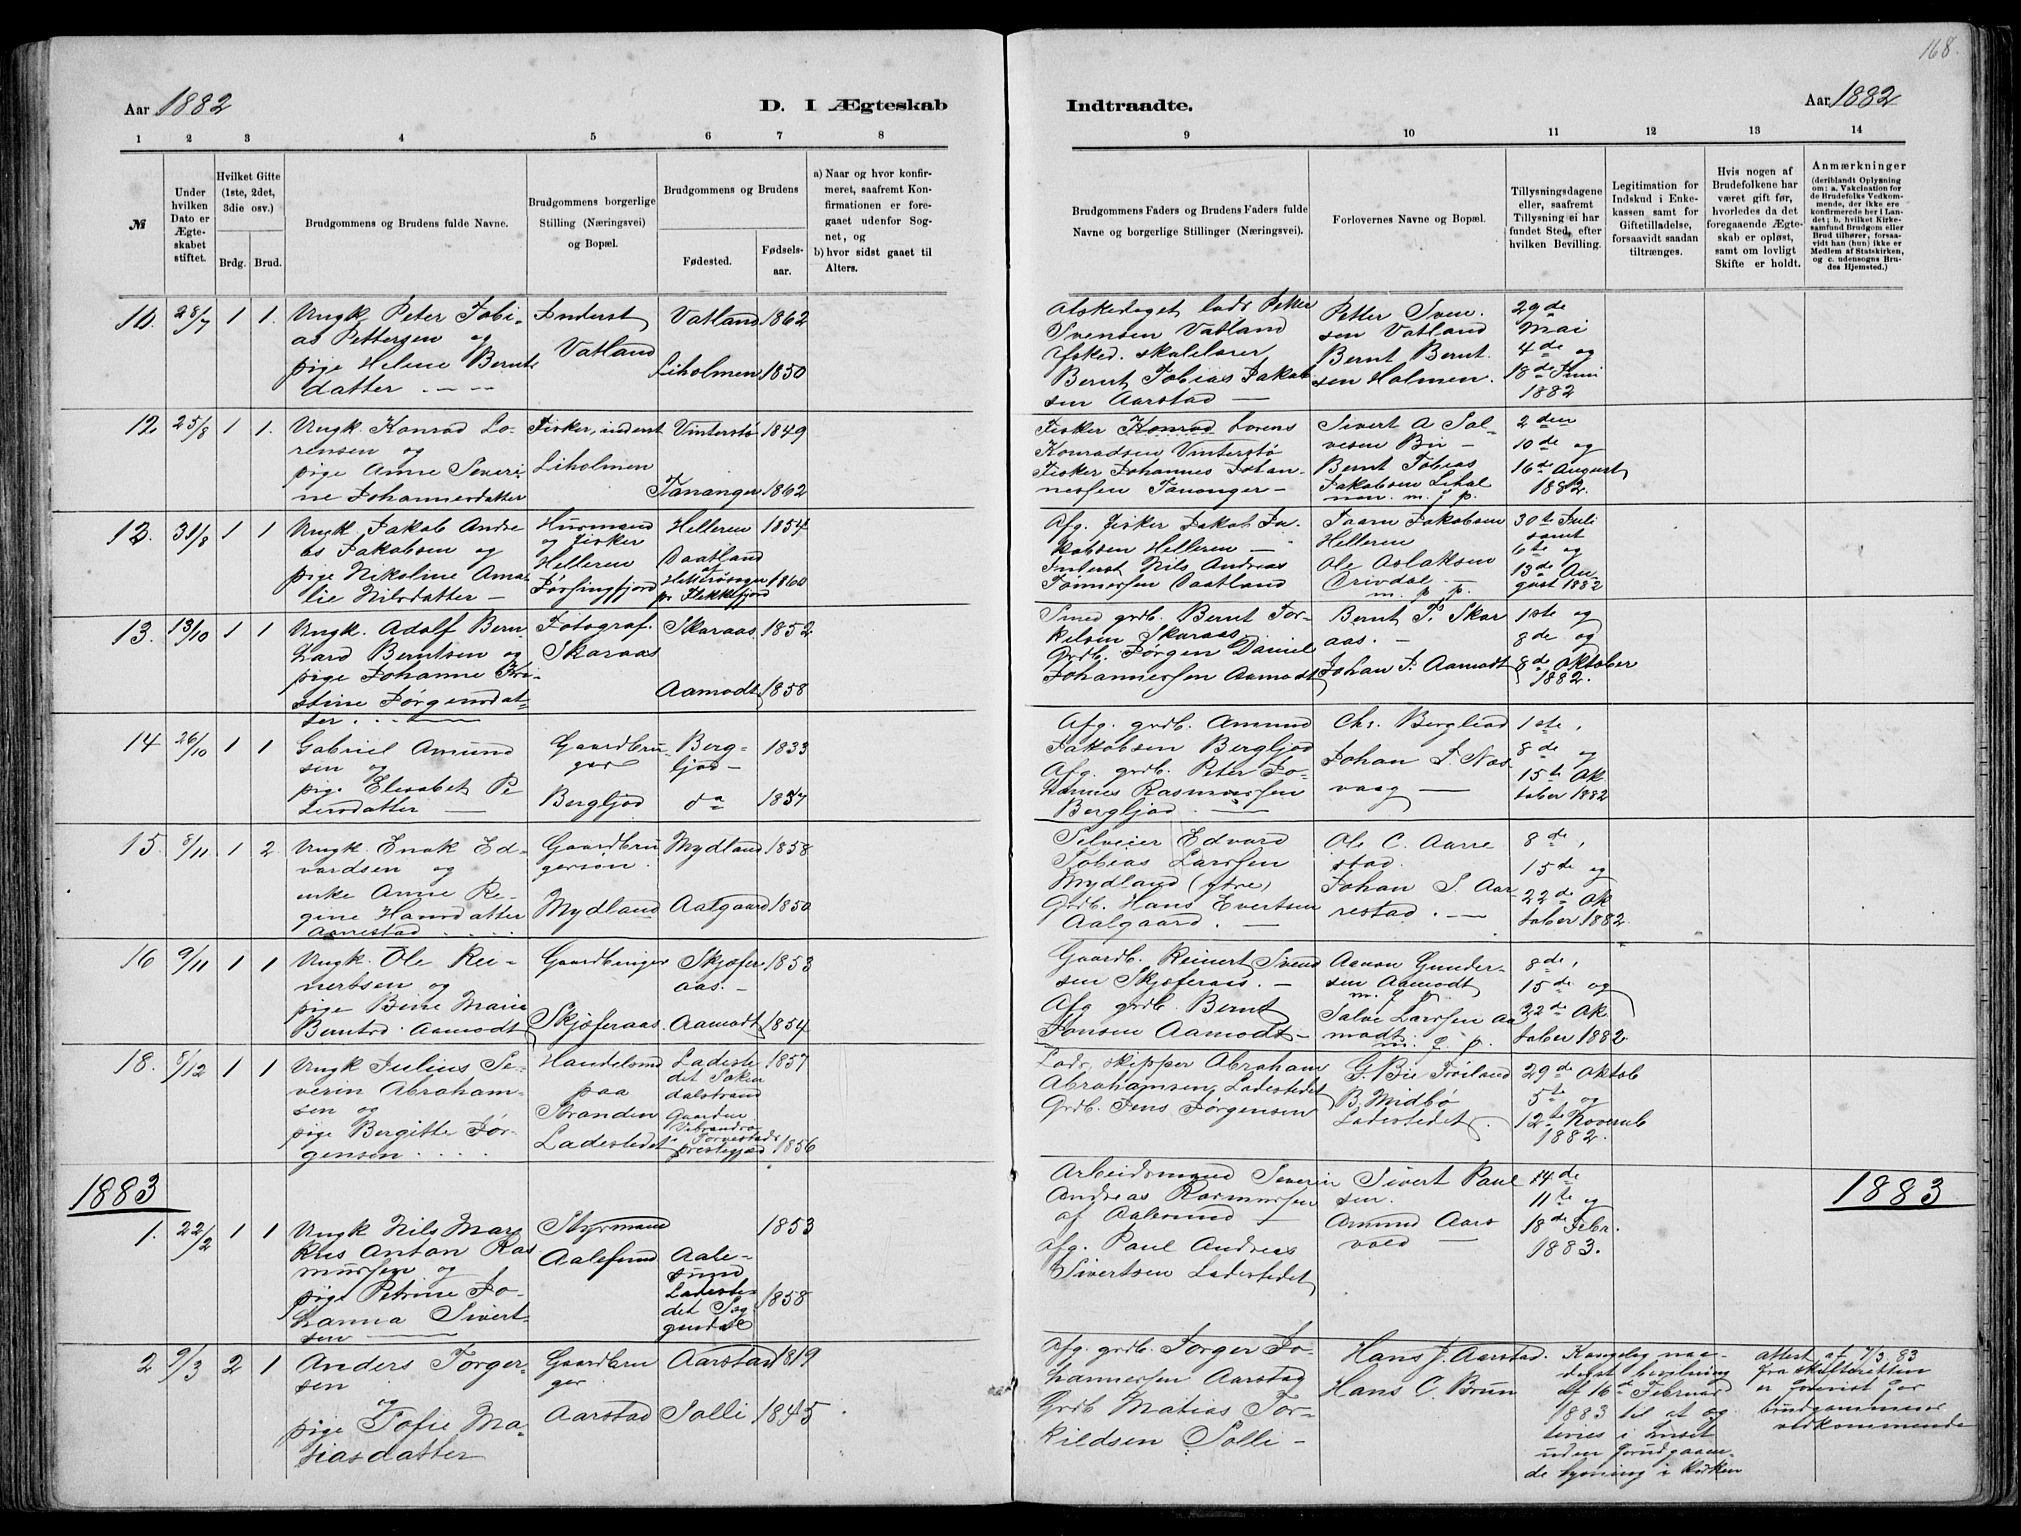 168.
Aar 1882
D. I Ægteskab
Indtraadte.
Aar 1882
1 2 3 4 5 6 7 8
9 10 11 12 13 14
№
Under hvilken Dato er Ægteskabet stiftet.
Hvilket Gifte (1ste, 2det, 3die osv.)
Brdg. Brud.
Brudgommens og Brudens fulde Navne.
Brudgommens borgerlige Stilling (Næringsvei) og Bopæl.
Brudgommens og Brudens
Fødested.
Fødsels-aar.
a) Naar og hvor konfirmeret, saafremt Konfirmationen er foregaaet udenfor Sognet, og
b) hvor sidst gaaet til Alters.
Brudgommens Faders og Brudens Faders fulde Navne og borgerlige Stillinger (Næringsvei).
Forlovernes Navne og Bopæl.
Tillysningsdagene eller, saafremt Tillysning ei har fundet Sted, efter hvilken Bevilling.
Legitimation for Indskud i Enkekassen samt for Giftetilladelse, forsaavidt saadan tiltrænges.
Hvis nogen af Brudefolkene har været gift før, hvorledes da det foregaaende Ægteskab er opløst, samt om lovligt Skifte er holdt.
Anmærkninger
(deriblandt Oplysning om: a. Vakcination for de Brudefolks Vedkommende, der ikke ere konfirmerede her i Landet; b. hvilket Kirkesamfund Brudgom eller Brud tilhører, forsaavidt han (hun) ikke er Medlem af Statskirken, og c. udensogns Brudes Hjemsted.)
11. 28/7 1 1.
Ungk. Peter Tobi-
as Pettersen og
pige Helene Bernts
datter
Inderst
Vatland
Vatland 1862
Liholmen 1850
Afskediget lods Petter
Svensen Vatland
Afsked. skolelærer
Bernt Tobias Jakob
sen Aarstad
Petter Sven
sen Vatland
Bernt Bernt.
sen Holmen.
29de
Mai
4de og
18de Juni
1882
12. 25/8 1 1.
Ungk. Konrad Lo-
rensen og
pige Anne Severi
ne Johannesdatter
Fisker, inderst
Liholmen
Vinterstø 1849
Tananger 1862
Fisker Konrad Lorens
Konradsen Vinterstø
Fisker Johannes Johan-
nessen Tananger
Sivert A Sal-
vesen Bu
Bernt Tobias
Jakobsen Lihol
men. m. f. p.
2den
10de og
16de August
1882.
12. 31/8 1 1
Ungk Jakob Andre
as Jakobsen og
pige Nikoline Ama
lie Nilsdatter
Husmand
og fisker
Helleren
Jøssingfjord
Helleren 1854
Vaatland
pr Flekkefjord 1860
Afg. fisker Jakob Ja-
kobsen Helleren
Inderst Nils Andreas
Tønnesen Vaatland
Jakobsen
Helleren
Ole Aslaksen
m. p. p.
30te Juli
samt
6te og
13de Au-
gust 1882
13. 13/10 1 1
Ungk. Adolf Bern
hard Berntsen og
pige Johanne Kri-
stine Jørgensdat-
ter.
Fotograf.
Skaraas
Skaraas 1852
Aamodt 1858
Smed grdb. Bernt Tor-
kelsen Skaraas
Grdb. Jørgen Daniel
Johannessen Aamodt
Bernt T. Skar
aas.
Johan J. Aamodt
1ste og
8de og
8de Oktober
1882.
14 26/10 1 1
Gabriel Amund
sen og
pige Elisabet Pe
tersdatter
Gaardbru-
ger
Bergljod
Berg-
ljod 1833
do 1837
Afg. grdb. Amund
Jakobsen Bergljod
Afg. grdb. Peter Jo-
hannes Rasmussen
Bergljod.
Chr. Bergliod
Johan J. Næs
vaag
1ste,
8de og
15te Ok
tober 1882
15. 8/11 1 2.
Ungk. Enok Ed-
vardsen og
enke Anne Re-
gine Hansdatter
Aarrestad
Gaardbru
gersøn.
Mydland
Mydland 1858
Aalgaard 1850
Selveier Edvard
Tobias Larssen
Mydland (ytre)
Grdb. Hans Evertsen
Aalgaard.
Ole C. Aarre
stad.
Johan S. Aar
restad.
8de,
15de og
22de Ok
tober 1882.
16 9/11 1 1
Ungk. Ole Rei-
nertsen og
pige Bine Marie
Berntsd. Aamodt
Gaardbruger
Skjæferaas
Skjæfer-
aas. 1853
Aamodt 1854
Gaardb. Reinert Svend
sen Skjæferaas.
Afg grdb. Bernt
Jonsen Aamodt
Aanon Gunder-
sen Aamodt
m. f. p.
Salve Larssen Aa
modt
m. f. p.
8de,
15de og
22de Ok.
tober 1882.
18. 8/12 1 1
Ungk Julius Se-
verin Abraham-
sen og
pige Bergitte Jør-
gensen
Handelsmd
paa
Stranden
Ladestedet
Ladeste
det Sokn
dalstrand 1857
Gaarden
præstegjæld 1856
Lods, skipper Abraham
Abrahamsen Ladestedet
Grdb. Jens Jørgensen
B. Midbø
Ladestedet.
29de Oktob
5te og
12te Novemb
1882.
1883
1883
1. 22/2 1 1
Ungk Nils Mar
kus Anton Ras
mussen og
pige Petrine Jo-
hanna Sivert-
sen
Styrmand
Aalesund
Aale-
sund 1853
Ladeste-
det Sog
gendal 1858
Arbeidsmand Severin
Andreas Rasmussen
af Aalesund
Afg. Paul Andreas
Sivertsen Ladestedet
Sivert Paul
sen.
Amund Aars
vold
14de
11te og
18de Febr.
1883.
2 9/3 2 1
Anders Torger-
sen
og
pige Sofie Ma-
tiasdatter
Gaardbru
ger
Aarstad
Aarstad 1819
Solli 1845
Afg. grdb. Torger Jo-
hannessen Aarstad
Grdb Matias Tor-
kildsen Solli
Hans J. Aarstad.
Hans C. Brun
Kongelig naa-
digst bevilning
af 16de Februar
1883 til at og
vies i huset
uden forudgaaen-
de lysning i kirken
attest af 7/3 83
fra skifteretten
er forevist for
brudgommens
vedkommende